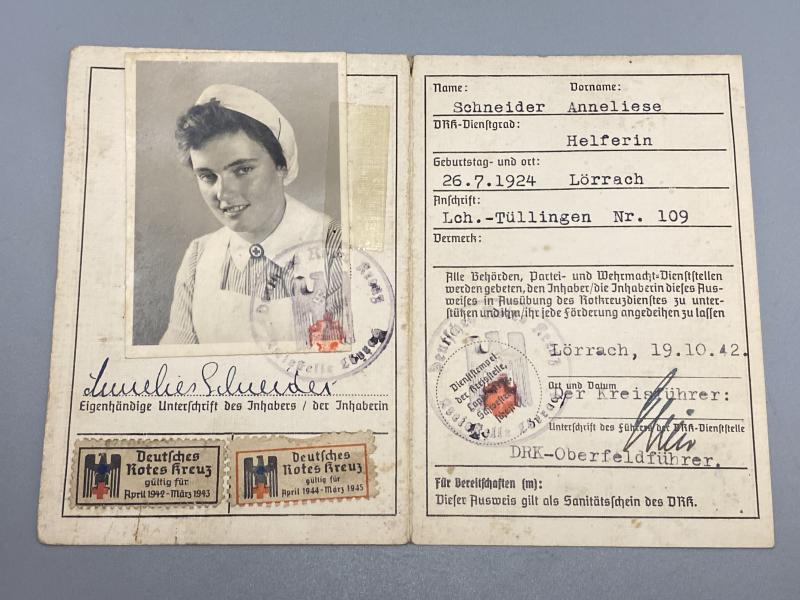 Annelies Schneider
Eigenhändige Unterschrift des Inhabers / der Inhaberin
Deutsches
Rotes Kreuz
gültig für
April 1942-März 1943
Deutsches
Rotes Kreuz
gültig für
April 1944-März 1945
Name: Vorname:
Schneider Anneliese
DRK-Dienstgrad:
Helferin
Geburtstag- und ort:
26.7.1924 Lörrach
Anschrift:
Lch.-Tüllingen Nr. 109
Vermerk:
Alle Behörden, Partei- und Wehrmacht-Dienststellen
werden gebeten, den Inhaber/die Inhaberin dieses Aus-
weises in Ausübung des Rotkreuzdienstes zu unter-
stützen und ihm/ihr jede Förderung angedeihen zu lassen
Deutsches Rotes Kreuz
Dienststempel
der Kreisstelle,
Lörrach, 19.10.42.
Ort und Datum
Der Kreisführer:
Unterschrift des Führers der DRK-Dienststelle
DRK-Oberfeldführer.
Für Bereitschaften (m):
Dieser Ausweis gilt als Sanitätsschein des DRK.